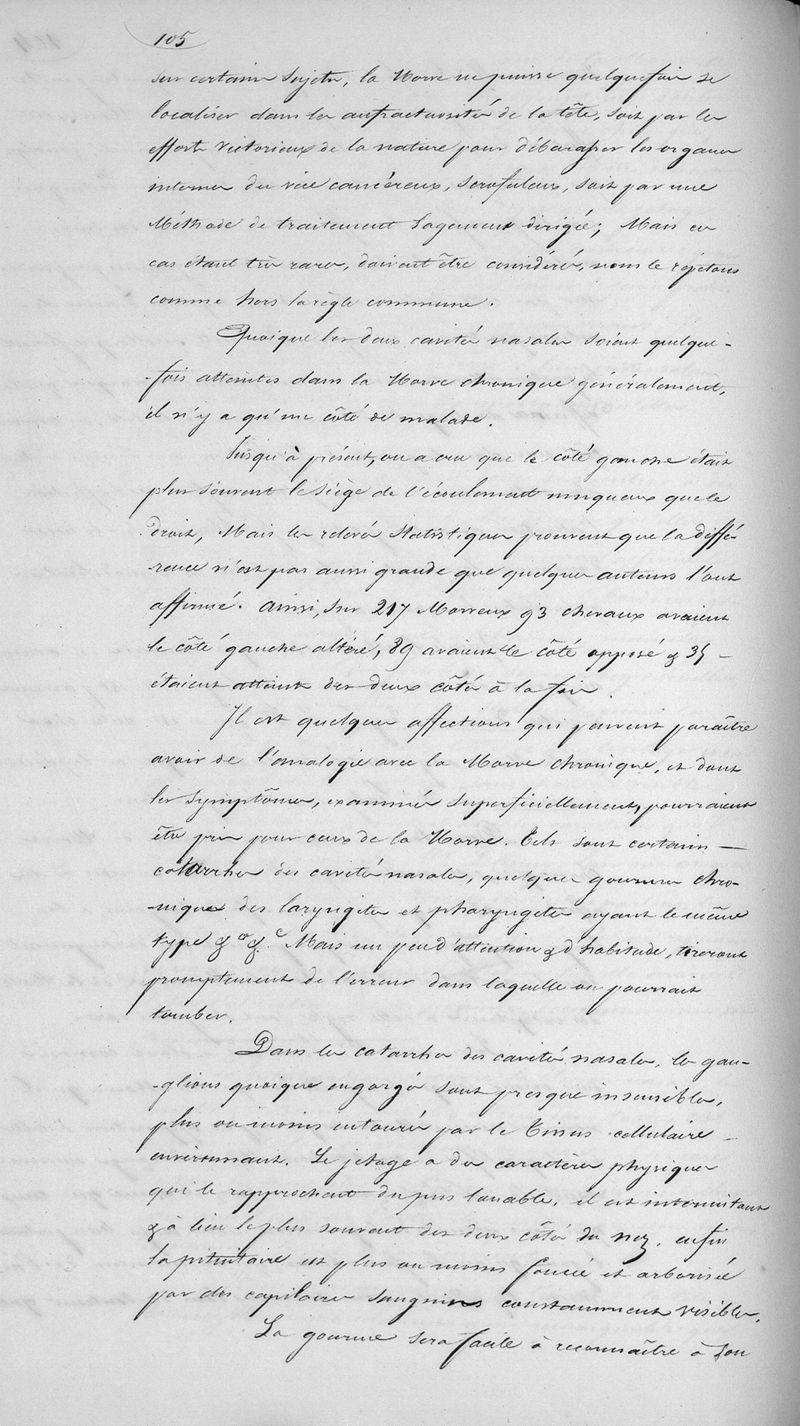 105
sur certains Sujets, la Morve ne puisse quelquefois se
localiser dans les anfractuosités de la tête, soit par les
efforts victorieux de la nature pour débarasser les organes
internes du vice cancéreux, scrofuleux, soit par une
Méthode de traitement Sagement dirigée; Mais ces
cas étant très rares, doivent être considérés, nous le répétons
comme hors la règle commune.
Quoique les deux cavités nasales soient quelque-
-fois atteintes dans la Morve chronique généralement,
il n'y a qu'une côté de malade.
Jusqu'à présent, on a cru que le côté gauche était
plus souvent le siège de l'écoulement muqueux que le
droit, Mais les relevés Statistiques prouvent que la diffé-
-rence n'est pas aussi grande que quelques auteurs l'ont
affirmé. Ainsi, sur 217 Morveux 93 chevaux avaient
le côté gauche altéré, 89 avaient le côté opposé & 35 -
étaient atteints des deux côtés à la fois.
Il est quelques affections qui peuvent paraître
avoir de l'analogie avec la Morve chronique, et dont
les Symptômes, examinés superficiellement, pourraient
être pris pour ceux de la Morve. Tels sont certains -
catarrhes des cavités nasales, quelques gourmes chro-
-niques des laryngites et pharyngites ayant le même
type &a &c. Mais un peu d'attention & d'habitude, tireront
promptement de l'erreur dans laquelle on pourrait
tomber.
Dans les catarrhes des cavités nasales, les gan-
-glions quoique engorgés sont presque insensibles,
plus ou moins entourés par le Tissus cellulaire -
environnant. Le jetage a des caractères physiques
qui le rapprochent du pus louable, il est intermittant
& a lieu le plus souvent des deux côtés du nez. enfin
la pituitaire est plus ou moins foncée et arborisée
par des capilaires sanguins constamment visibles.
La gourme sera facile à reconnaître à son